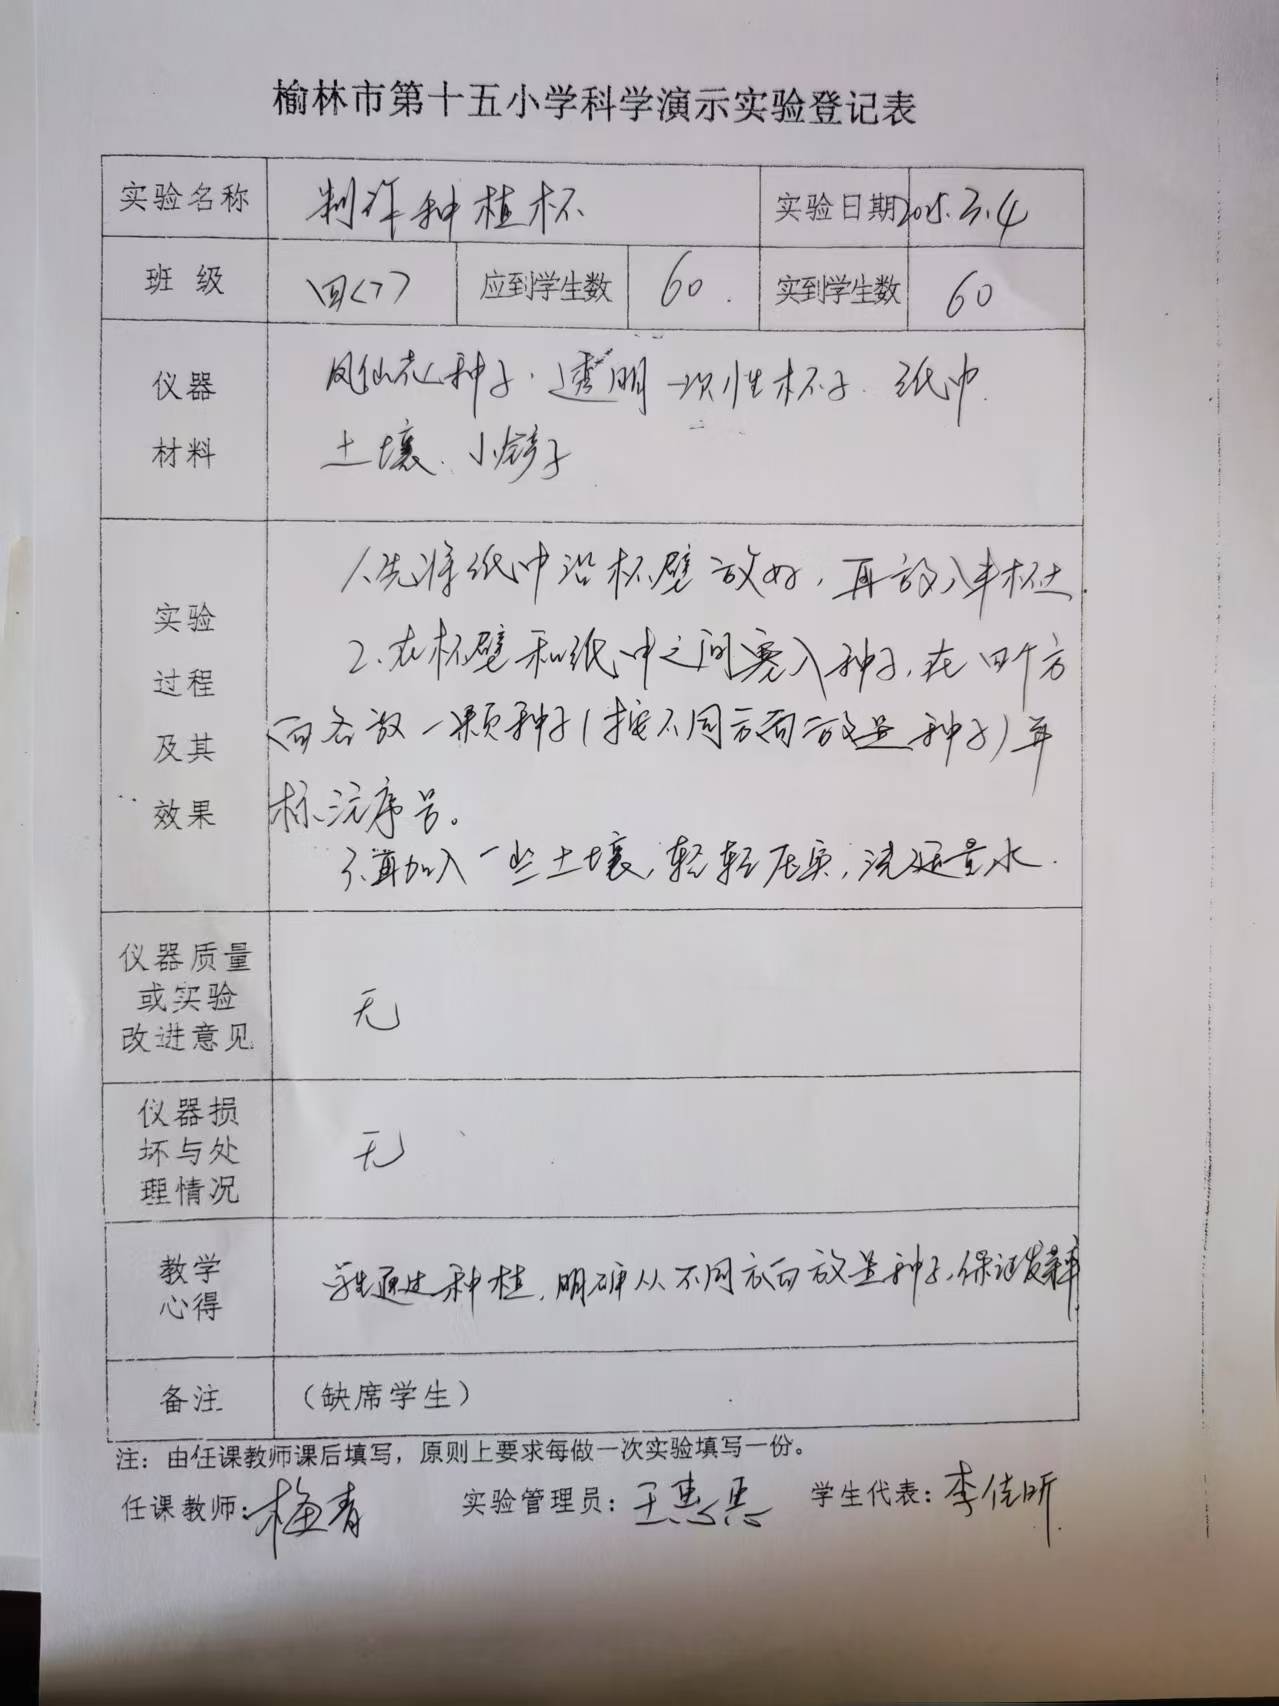 榆林市第十五小学科学演示实验登记表
实验名称 制作种植杯 实验日期 2025.3.4
班级 四<7> 应到学生数 60. 实到学生数 60
仪器 凤仙花种子.透明一次性杯子.纸巾.
材料 土壤.小铲子
1.先将纸巾沿杯壁放好,再放入半杯土.
实验 2.在杯壁和纸巾之间塞入种子,在四个方
过程 向各放一颗种子(按不同方向放置种子)并
及其 标注序号。
效果 3.再加入一些土壤,轻轻压实,浇适量水.
仪器质量
或实验 无
改进意见
仪器损
坏与处 无
理情况
教学 学生通过种植,明确从不同方向放置种子,保证发芽率
心得
备注 (缺席学生)
注:由任课教师课后填写,原则上要求每做一次实验填写一份。
任课教师:梅青 实验管理员:王惠惠 学生代表:李佳昕